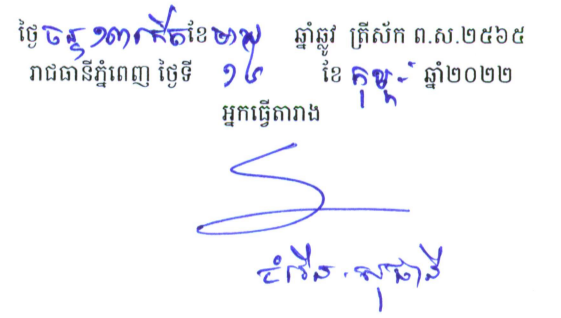 ថ្ងៃ ចន្ទ ១៣ កើត ខែ មាឃ ឆ្នាំឆ្លូវ ត្រីស័ក ព.ស.២៥៦៥
រាជធានីភ្នំពេញ ថ្ងៃទី ១៤ ខែ កុម្ភៈ ឆ្នាំ២០២២
អ្នកធ្វើតារាង